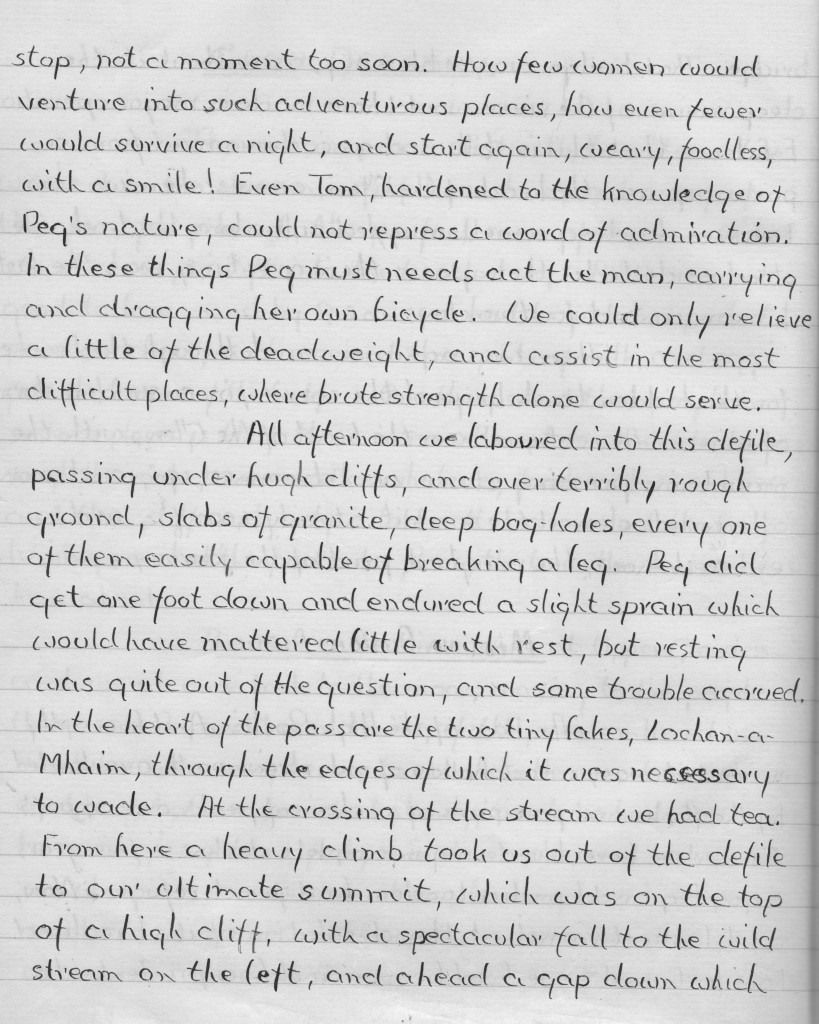 stop, not a moment too soon. How few women would
venture into such adventurous places, how even fewer
would survive a night, and start again, weary, foodless,
with a smile! Even Tom, hardened to the knowledge of
Peg's nature, could not repress a word of admiration.
In these things Peg must needs act the man, carrying
and dragging her own bicycle. We could only relieve
a little of the deadweight, and assist in the most
difficult places, where brute strength alone would serve.
All afternoon we laboured into this defile,
passing under hugh cliffs, and over terribly rough
ground, slabs of granite, deep bog-holes, every one
of them easily capable of breaking a leg. Peg did
get one foot down and endured a slight sprain which
would have mattered little with rest, but resting
was quite out of the question, and some trouble accrued.
In the heart of the pass are the two tiny lakes, Lochan-a-
Mhaim, through the edges of which it was necessary
to wade. At the crossing of the stream we had tea.
From here a heavy climb took us out of the defile
to our ultimate summit, which was on the top
of a high cliff, with a spectacular fall to the wild
stream on the left, and ahead a gap down which